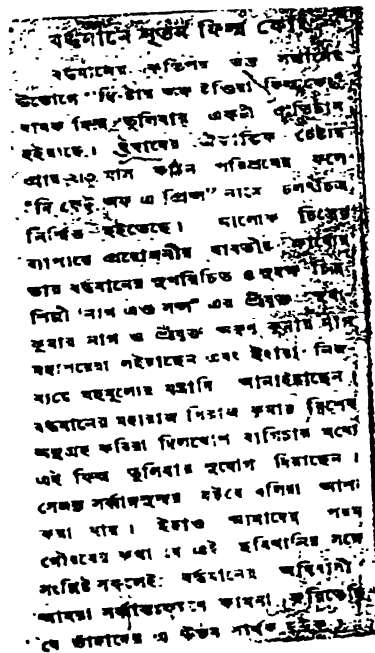 বর্দ্ধমানে নূতন ফিল্ম কোং
বর্দ্ধমানের কতিপয় ভদ্র সন্তানের
উদ্যোগে "দি ষ্টার অফ ইণ্ডিয়া ফিল্ম কোং"
নামক ফিল্ম তুলিবার একটী প্রতিষ্ঠান
হইয়াছে। ইহাদের ঐকান্তিক চেষ্টায়
প্রায় ২৷৩ মাস কঠিন পরিশ্রমের ফলে
"দি অফ এ প্রিন্স" নামে চলচ্চিত্র
নির্ম্মিত হইতেছে। আলোক চিত্রের
ব্যাপারে প্রয়োজনীয় যাবতীয় কার্য্যের
ভার বর্দ্ধমানের সুপরিচিত ও সুদক্ষ চিত্র
শিল্পী "নাগ এণ্ড সন্স" এর শ্রীযুক্ত
কুমার নাগ ও শ্রীযুক্ত অরুণ কুমার নাগ
মহাশয়েরা লইয়াছেন এবং ইহারা নিজ
ব্যয়ে বহুমূল্যের যন্ত্রাদি আনাইয়াছেন।
বর্দ্ধমানের মহারাজ কুমার বিশেষ
অনুগ্রহ করিয়া দিলখোশ বাগিচার মধ্যে
এই ফিল্ম তুলিবার সুযোগ দিয়াছেন।
সেজন্য সর্ব্বাঙ্গসুন্দর হইবে বলিয়া আশা
করা যায়। ইহাও আমাদের পরম
গৌরবের কথা যে এই ছবিখানির সঙ্গে
সংশ্লিষ্ট সকলেই বর্দ্ধমানের অধিবাসী
আমরা সর্ব্বান্তঃকরণে কামনা করিতেছি
যে তাঁহাদের এ উদ্যম সার্থক হউক।